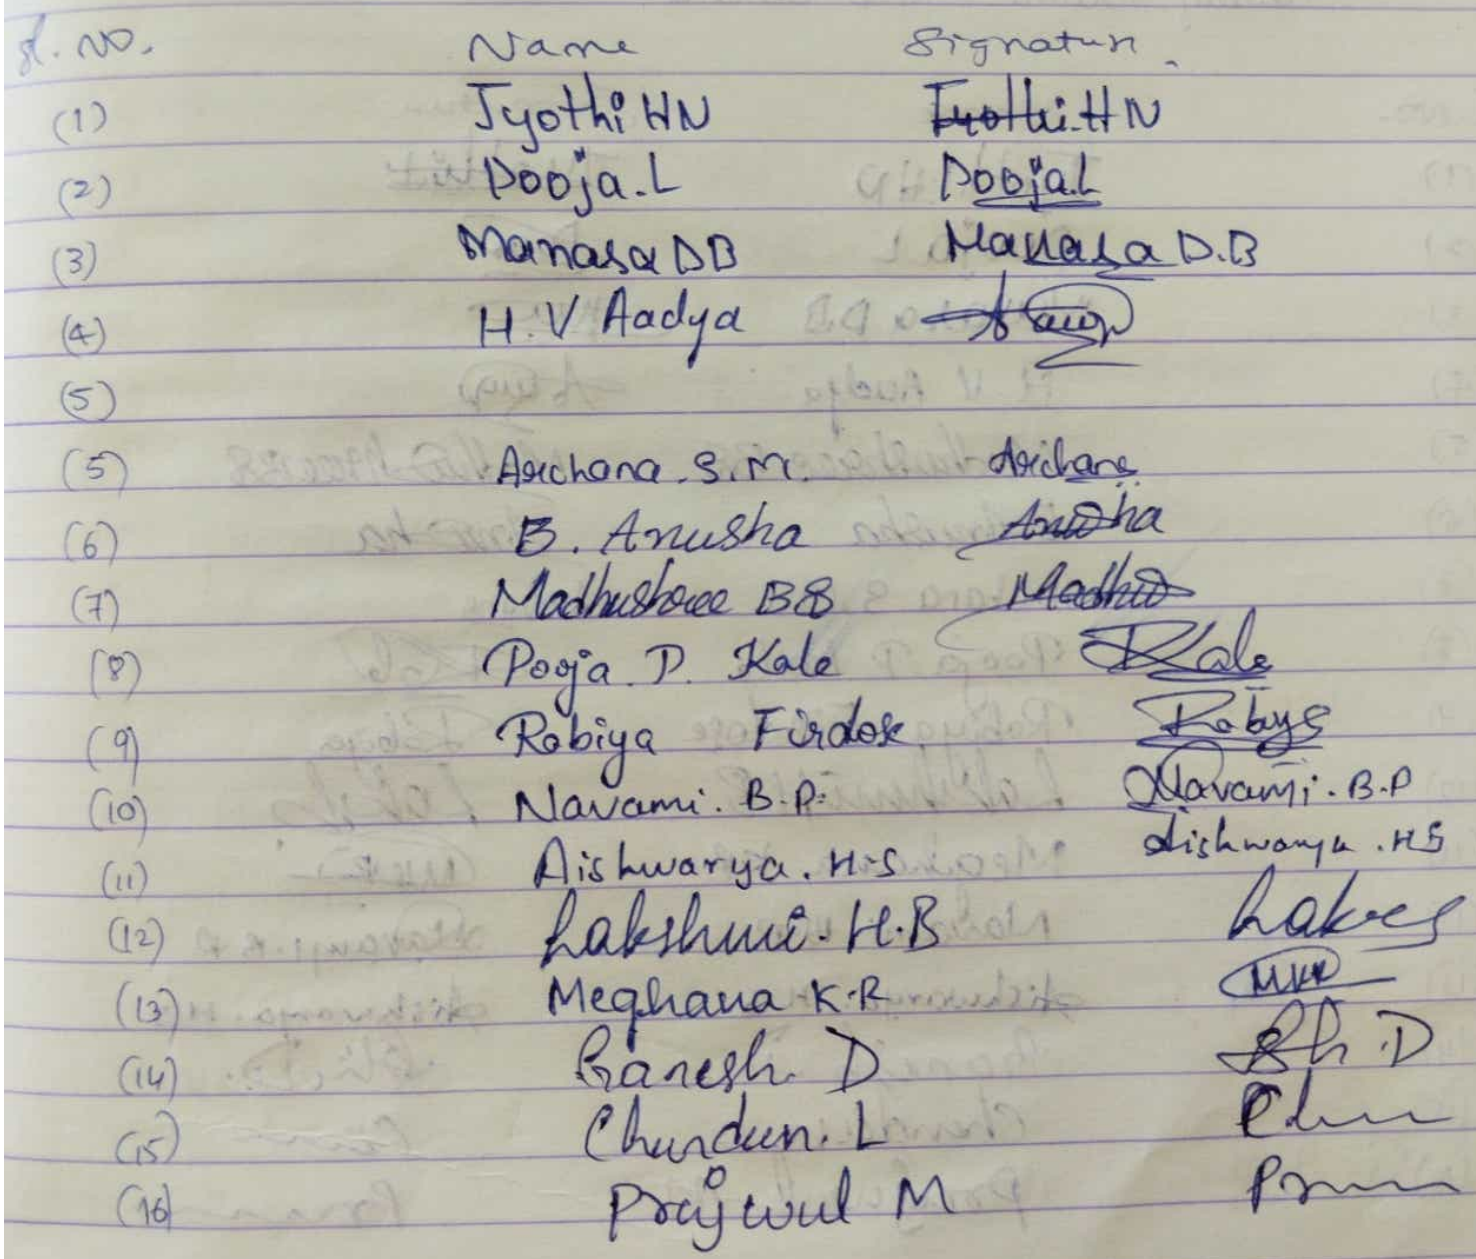 Sl. No. Name Signature
(1) Jyothi HN Jyothi.HN
(2) Pooja.L Pooja.L
(3) Manasa DB Manasa D.B
(4) H.V Aadya
(5)
(5) Archana.S.M. Archana
(6) B. Anusha Anusha
(7) Madhushree BS Madhu
(8) Pooja.P. Kale Kale
(9) Rabiya Firdose Rabiya
(10) Navami.B.P. Navami.B.P
(11) Aishwarya.H.S Aishwarya.HS
(12) Lakshmi.H.B
(13) Meghana K.R
(14) Ganesh D
(15) Chandan.L
(16) Prajwal M